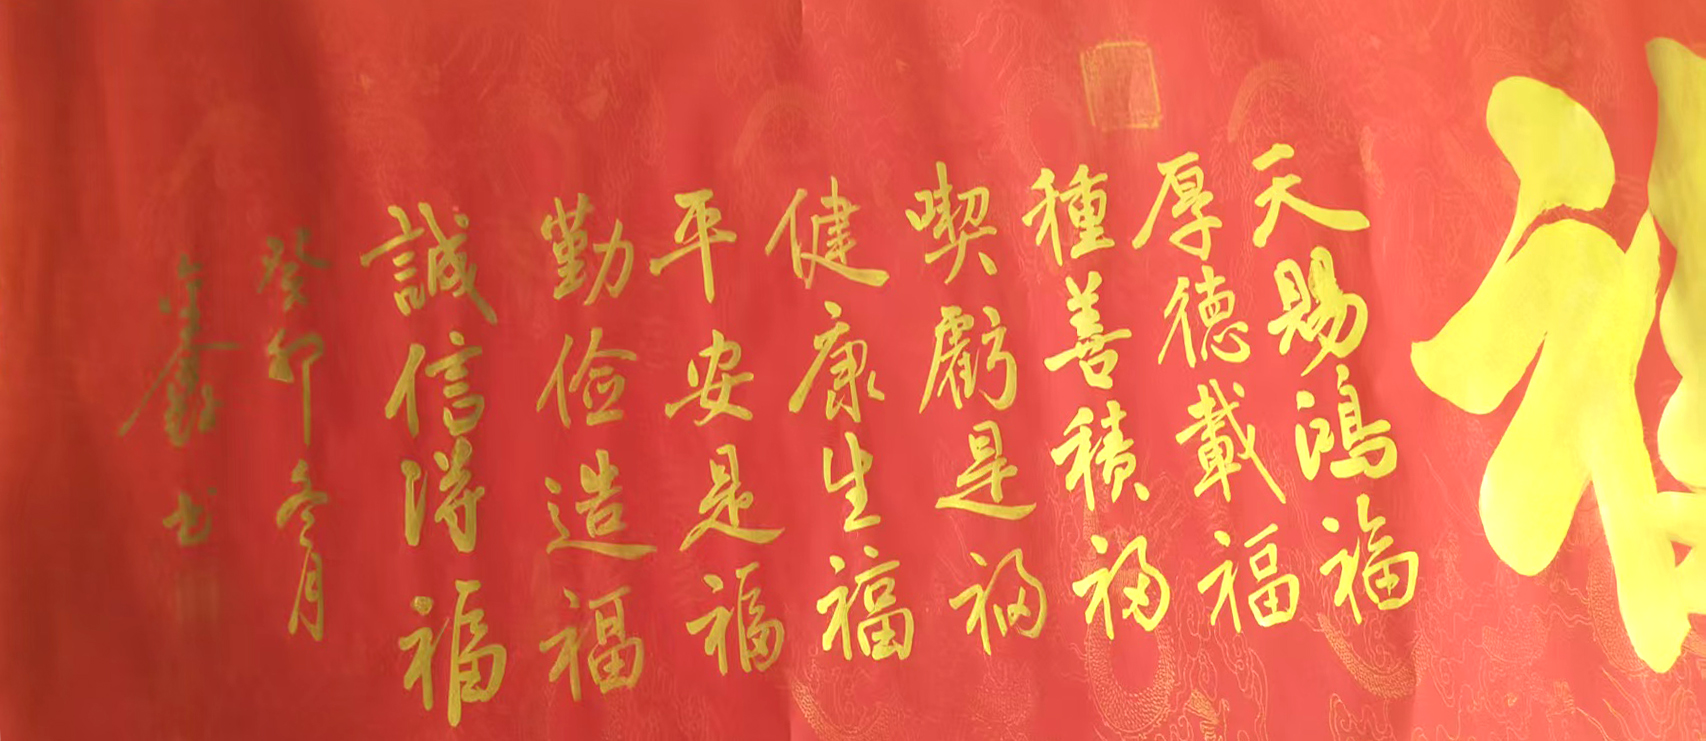 天賜鴻福
厚德載福
種善積福
喫虧是福
健康生福
平安是福
勤俭造福
誠信得福
癸卯冬月
书